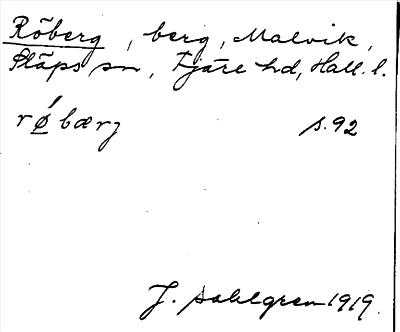 Röberg, berg, Malvik,
Släps sn, Fjäre hd, Hall. l.
rǿbærj s. 92
J. Sahlgren 1919.